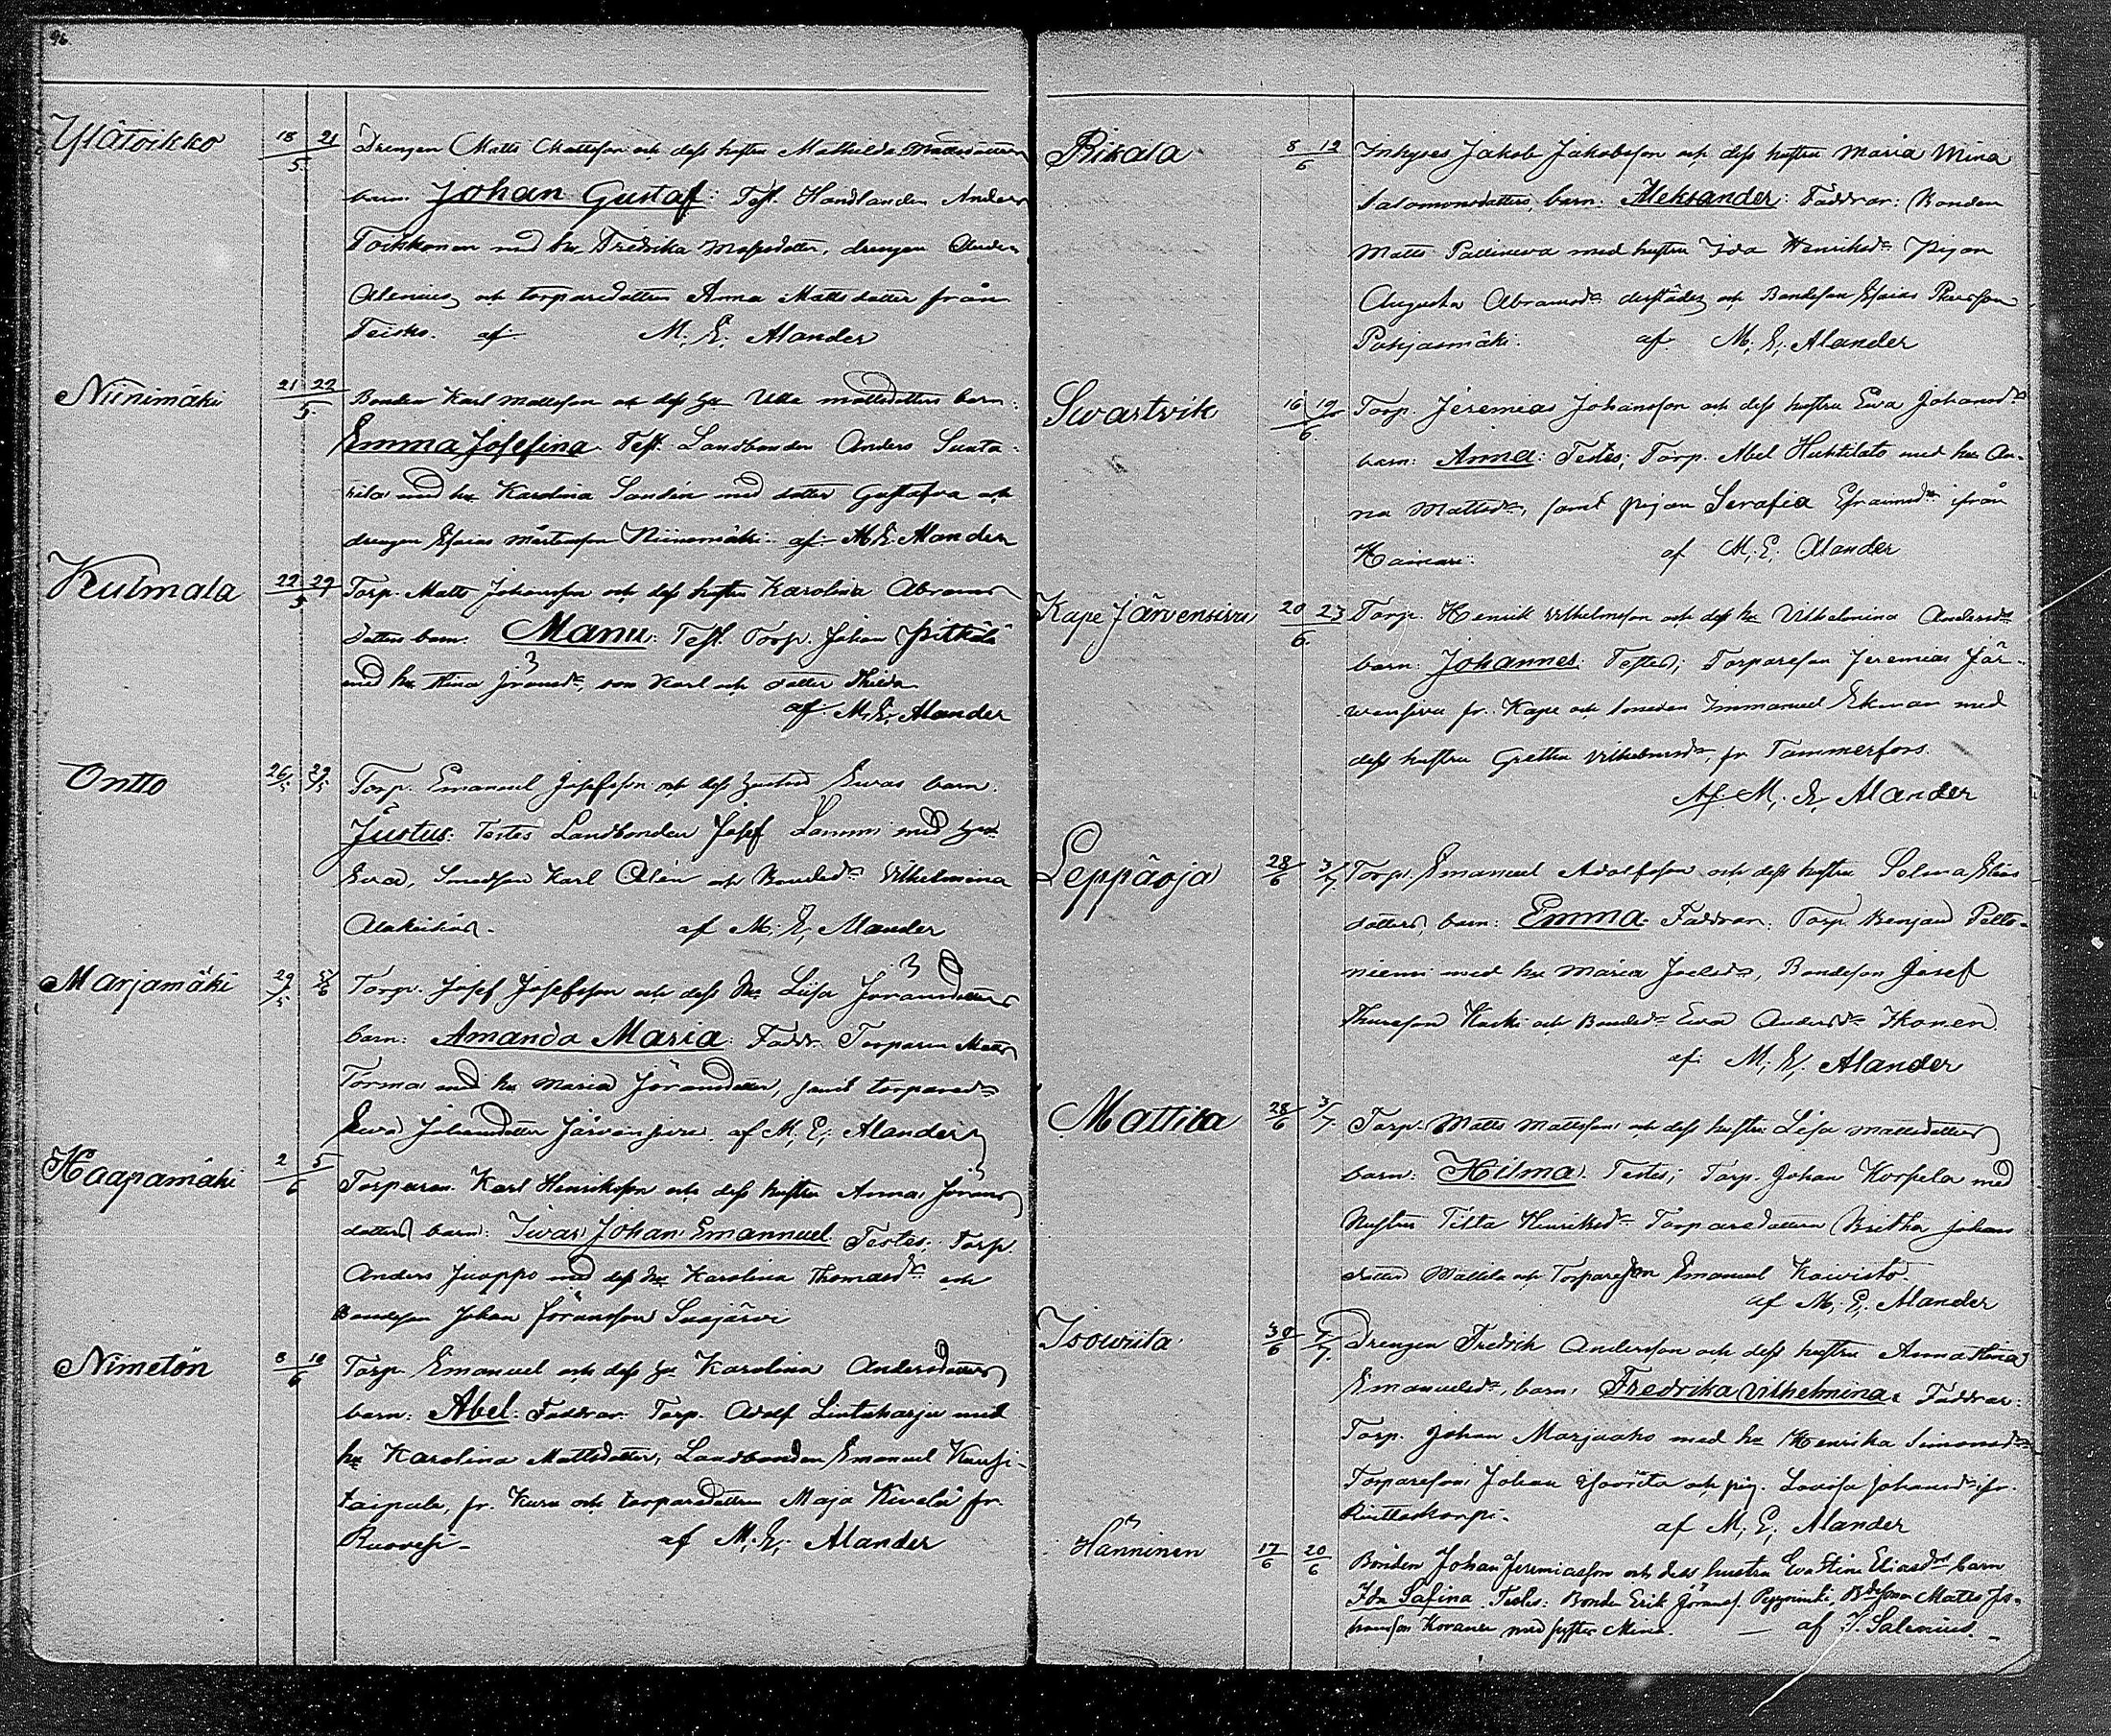 96.
Ylätoikko 18/5 21 Drengen Matts Mattsson och dess hustru Mathilda Mattsdotters
barn Johan Gustaf: Test. Handlanden Anders
Toikkonen med hu Fredrika Mattsdotter, drengen Anders
Alenius, och torparedottern Anna Mattsdotter från
Teisko. af M. E. Alander
Niinimäki 21 22/5 Bonden Karl Mattsson och dess Hu Ulla Mattsdotters barn:
Emma Josefina. Test. Landbonden Anders Sunta-
rila med hu Karolina Sandén med dotter Gustafva och
drengen Esaias Mårtensson Niinimäki. af M. E. Alander
Kulmala 22 27/5 Torp. Matts Johansson och dess hustru Karolina Abrams
dotters barn. Manu: Test. Torp. Johan Pitkälä
med hu Stina Jöransdr, son Karl och dotter Thilda
af M. E. Alander
Ontto 26/5 29/5 Torp. Emanuel Josefsson och dess hustru Evas barn.
Justus: Testes Landbonden Josef Lammi med hu
Eva, Smedson Karl Alén och Bonded. Vilhelmina
af M. E. Alander
Marjamäki 29/5 5/6 Torp. Josef Josefsson och dess hu Liisa Jöransdotters
barn: Amanda Maria: Faddr. Torparen Matts
Torma med hu Maria Jöransdotter, samt torpared.
Eva Johansdotter Järvensivu. af M. E. Alander
Haapamäki 2 5/6 Torparen Karl Henriksson och dess hustru Anna Jörans
dotters barn: Iwar Johan Emannuel. Testes: Torp.
Anders Juoppo med dess hu Karolina Thomasdr och
Bondeson Johan Jöransson Suojärvi
Nimetön 8 10/6 Torp. Emanuel och dess Hu Karolina Andersdotters
barn: Abel: Faddrar: Torp. Adolf Lintuharju med
hu Karolina Mattsdotter, Landbonden Emanuel Kuusi-
taipale, fr. Kuru och torparedottern Maja Kivelä fr.
Ruovesi. af M. E. Alander
Rikala 8 12/6 Inhyses Jakob Jakobsson och dess hustru Maria Mina
Salomonsdotters, barn: Aleksander: Faddrar: Bonden
Matts Pallineva med hustru Ida Henriksdr. Pigan
Augusta Abramsdr. derstädes och Bondeson Esaias Persson
Pohjasmäki. af M. E. Alander
Swartvik 16 19/6 Torp. Jeremias Johansson och dess hustru Eva Johansdrs
barn: Anna: Testes; Torp. Abel Huhtilato med hu An-
na Mattsdr, samt pigan Serafia Efraimsdr ifrån
Hainari. af M. E. Alander
Kape Järvensivu 20 23/6 Torp. Henrik Vilhelmsson och dess hu Vilhelmina Andersdrs
barn: Johannes. Testes; Torpareson Jeremias Jär-
wensivu fr. Kape och smeden Immanuel Ekman med
dess hustru Gretha Vilhelmsdr, fr. Tammerfors.
Af M. E. Alander
Leppäoja 28/6 3/7 Torp. Emanuel Adolfsson och dess hustru Selma Elias
dotters, barn: Emma. Faddrar: Torp. Benjam. Pelto-
niemi med hu Maria Joelsdr, Bondeson Josef
Thuresson Kaski och Bonded. Eva Andersdr Ikonen.
af M. E. Alander
Mattila 28/6 3/7 Torp. Matts Mattsson och dess hustru Lisa Mattsdotters
barn: Hilma. Testes; Torp. Johan Korpela med
hustru Tilta Henriksdr. Torparedottern Britha Johans
dotter Mattila och Torpareson Emanuel Koivisto.
af M. E. Alander
Isowiita 30/6 /7 Drengen Fredrik Andersson och dess hustru Anna Stina
Emanuelsdr, barn, Fredrika Vilhelmina: Faddrar:
Torp. Johan Marjaaho med hu Henrika Simonsdr
Torpareson Johan Isoviita och pig. Lovisa Johansdr. fr.
af M. E. Alander
Hänninen 17/6 20/6 Bonden Johan Jeremiasson och dess hustru Eva Stina Eliasdrs barn
Ida Safina. Testes: Bonden Erik Jöranss. Pyynikki, Bdeson Matts Jo-
hansson Koranen med syster Mina. — af J. Salenius. —